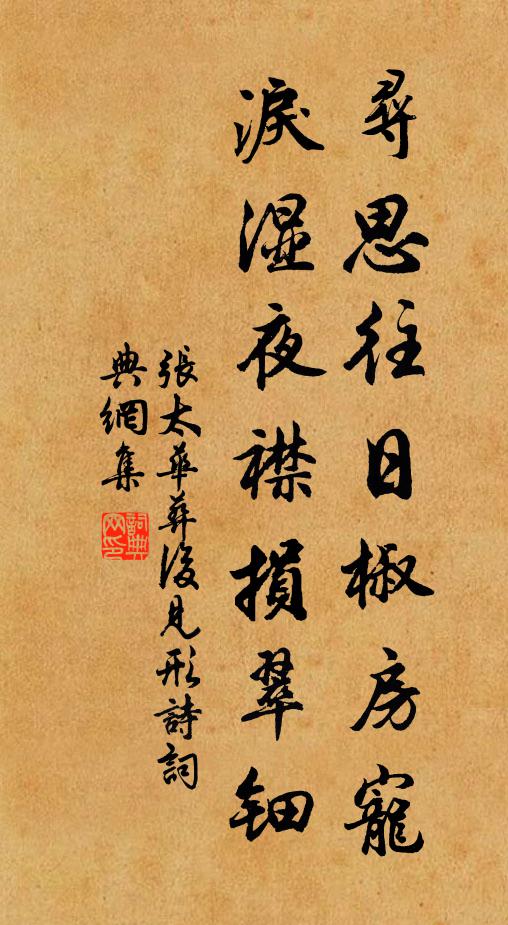 尋思往日椒房寵
淚濕夜襟損翠鈿
張太華葬後見形詩詞
典網集
詞典
网印